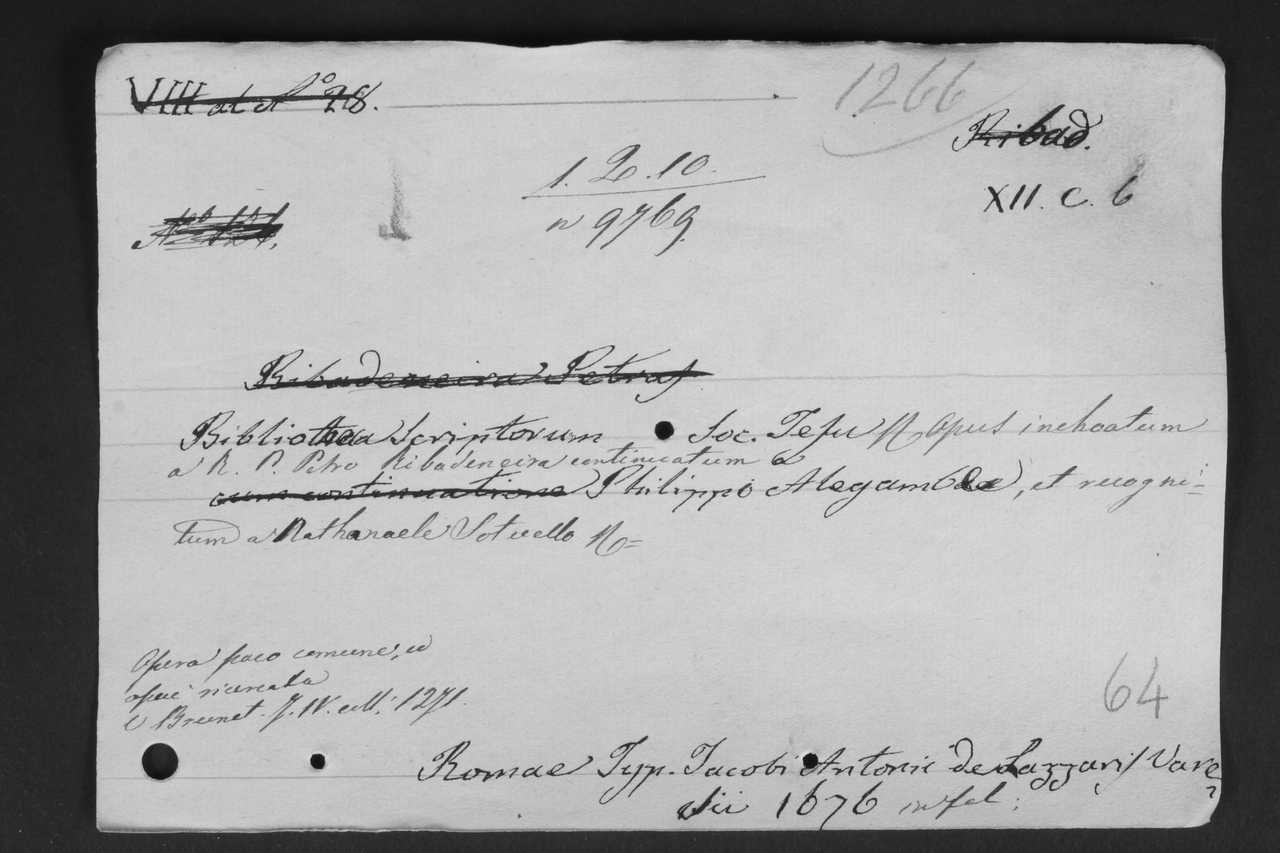 VIII at No 28.
1266
Ribad.
1. 2. 10.
XII. C. 6
n 9769.
No 121.
Ribadeneira Petrus
Bibliotheca Scriptorum Soc. Jesu Opus inchoatum
a R. P. Petro Ribadeneira continuatum a
cum continuatione Philippo Alegambe, et recogni=
tum a Nathanaele Sotuello
Opera poco comune, ed
assai ricercata
V Brunet. T. IV. coll: 1271.
64
Romae Typ. Jacobi Antonii de Lazzaris Vare
sii 1676 in fol: